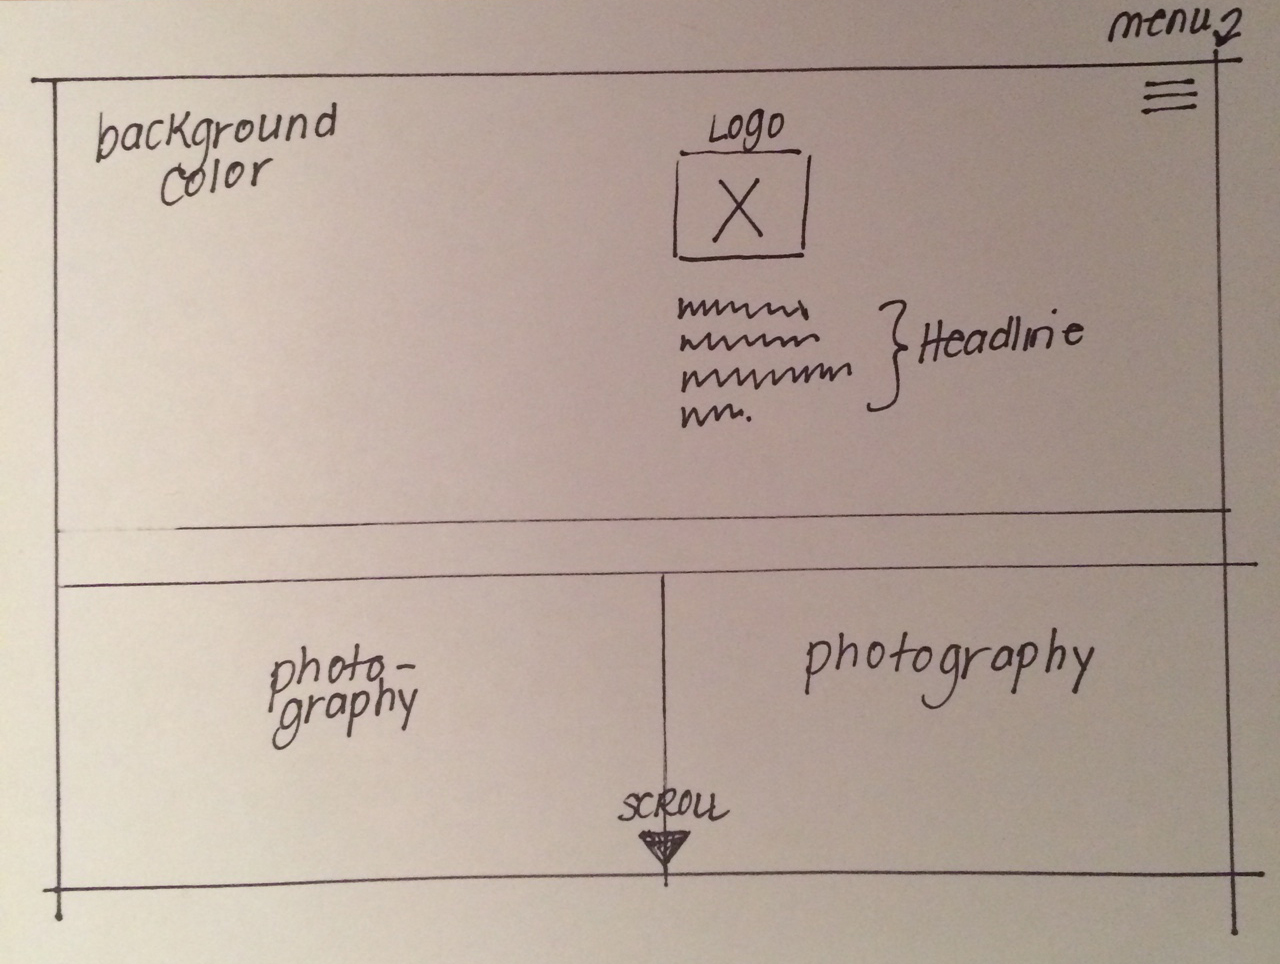 menu
background
color
Logo
X
Headline
photo-
graphy
photography
SCROLL